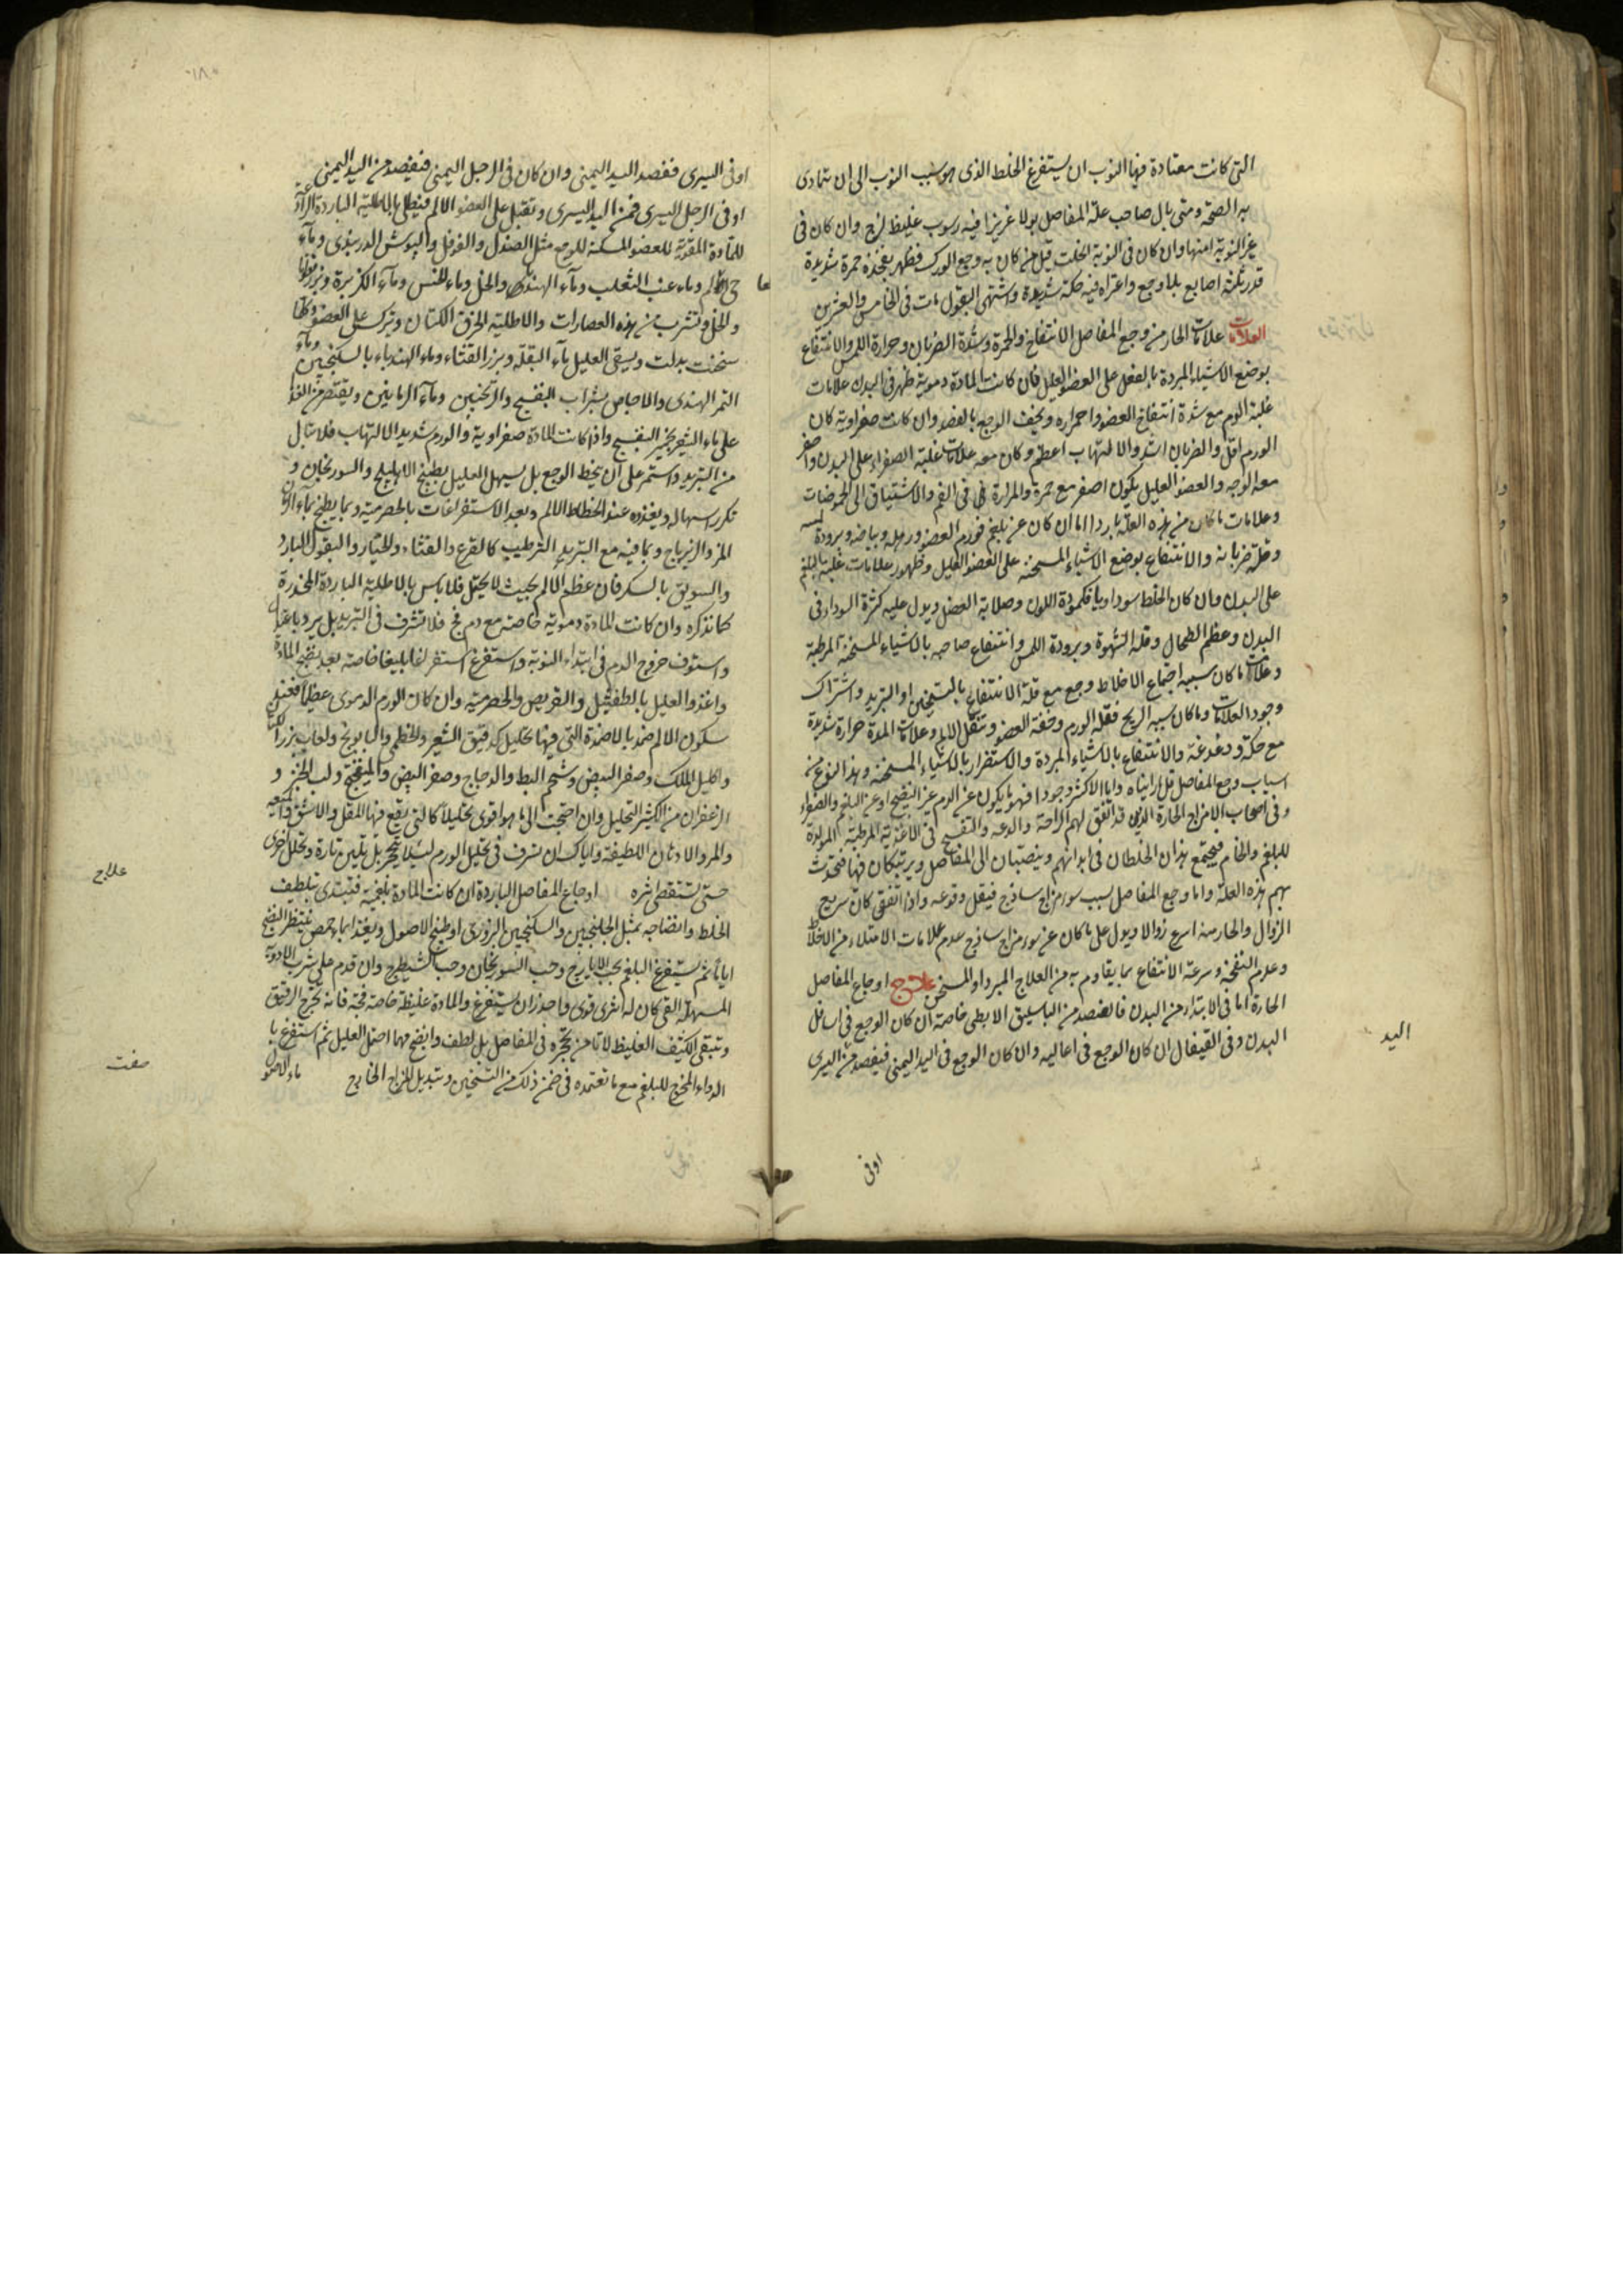 التى كانت معتادة فيها النوب ان يستفرغ الخلط الذى هو سبب النوب الى ان تتمادى
به الصحة ومتى بال صاحب علة المفاصل بولا غزيرا فيه رسوب غليظ لزج وان كان فى
غير النوبة امنها وان كان فى النوبة انحلت قيل من كان به وجع الورك فظهر بفخذه حمرة شديدة
قدر ثلثة اصابع بلا وجع واعتراه فيه حكة شديدة واشتهى البقول مات فى الخامس والعشرين
العلامات علامات الحار من وجع المفاصل الانتفاخ والحمرة وشدة الضربان وحرارة اللمس والانتفاع
بوضع الاشياء المبردة بالفعل على العضو العليل فان كانت المادة دموية ظهر فى البدن علامات
غلبة الدم مع شدة انتفاخ العضو واحمراره ويخف الوجع بالفصد وان كانت صفراوية كان
الورم اقل والضربان اشد والالتهاب اعظم وكان معه علامات غلبة الصفراء على البدن واصفر
معه الوجه والعضو العليل يكون اصفر مع حمرة والمرارة فى الفم والاشتياق الى الحموضات
وعلامات ما كان من هذه العلة باردا اما ان كان عن بلغم فورم العضو ورهله وبياضه وبرودة لمسه
وقلة ضربانه والانتفاع بوضع الاشياء المسخنة على العضو العليل وظهور علامات غلبة البلغم
على البدن وان كان الخلط سوداويا فكمودة اللون وصلابة العضو ويدل عليه كثرة السودا فى
البدن وعظم الطحال وقلة الشهوة وبرودة اللمس وانتفاع صاحبه بالاشياء المسخنة المرطبة
وعلامات ما كان سببه اجتماع الاخلاط وجع مع قلة الانتفاع بالتسخين او التبريد واشتراك
وجود العلامات وما كان سببه الريح فقلة الورم وخفة العضو وتنقل الالم وعلامات المدة حرارة شديدة
مع حكة ودغدغة والانتفاع بالاشياء المبردة والاستضرار بالاشياء المسخنة وهذا النوع من
اسباب وجع المفاصل قل ما رايناه واما الاكثر وجودا فهو ما يكون عن الدم غير النضيج او عن البلغم والصفراء
وفى اصحاب الامزاج الحارة الذين قد اتفق لهم الراحة والدعة والتفسح فى الاغذية المرطبة المولدة
للبلغم والخام فيجتمع هذان الخلطان فى ابدانهم وينصبان الى المفاصل ويرتبكان فيها فتحدث
بهم هذه العلة واما وجع المفاصل بسبب سوء مزاج ساذج فيقل وقوعه واذا اتفق كان سريع
الزوال والحار منه اسرع زوالا ويدل على ما كان عن سوء مزاج ساذج عدم علامات الامتلاء من الاخلاط
وعدم النفخة وسرعة الانتفاع بما يقاوم به من العلاج المبرد او المسخن علاج اوجاع المفاصل
الحارة اما فى الابتداء من البدن فالفصد من الباسليق الابطى خاصة ان كان الوجع فى اسافل
البدن وفى القيفال ان كان الوجع فى اعاليه وان كان الوجع فى اليد اليمنى فيفصد من اليسرى
اليد
اوفى
١٨٠
او فى اليسرى ففصد اليد اليمنى وان كان فى الرجل اليمنى فيفصد من اليد اليمنى
او فى الرجل اليسرى فمن اليد اليسرى وتقبل على العضو الالم فيطلى بالاطلية الباردة الرادعة
للمادة المقوية للعضو المسكنة للوجع مثل الصندل والفوفل والبوش الدربندى وماء
حى العالم وماء عنب الثعلب وماء الهندبا والخل وماء الخس وماء الكزبرة وبزر قطونا
والخل وتشرب من هذه العصارات والاطلية الخرق الكتان وتترك على العضو وكلما
سخنت بدلت ويسقى العليل ماء البقلة وبزر القثاء وماء الهندباء بالسكنجبين وماء
التمر الهندى والاجاص بشراب البنفسج والترنجبين وماء الرمانين ويقتصر من الغذا
على ماء الشعير بخمير البنفسج واذا كانت المادة صفراوية والورم شديد الالتهاب فلا تبال
من التبريد واستمر على ان ينحط الوجع بل يسهل العليل بطبيخ الاهليلج والسورنجان و
تكرر اسهاله ويغذوه عند انحطاط الالم وبعد الاستفراغات بالحصرمية وبما يطبخ بماء الرمان
المز والزيرباج وبما فيه مع التبريد الترطيب كالقرع والقثاء والخيار والبقول البارد
والسويق بالسكر فان عظم الالم بحيث لا يحتمل فلا باس بالاطلية الباردة المخدرة
كما نذكره وان كانت المادة دموية خاصة مع دم فج فلا تشرف فى التبريد بل برد باعتدال
واستوف خروج الدم فى ابتداء النوبة واستفرغ استفراغا بليغا خاصة بعد نضج المادة
واغذوا العليل بالطفشيل والقريص والحصرمية وان كان الورم الدموى عظيما فعند
سكون الالم ضمد بالاضمدة التى فيها تحليل كدقيق الشعير والخطمى والبابونج ولعاب بزر الكتان
واكليل الملك وصفر البيض وشحم البط والدجاج وصفر البيض والميفختج ولب الخبز و
الزعفران من الكثير التحليل وان احتجت الى ما هو اقوى تحليلا كالتى يقع فيها المقل والاشق والميعه
والمر والادهان اللطيفة واياك ان تسرف فى تحليل الورم لئلا يتحجر بل تلين تارة وتحلل اخرى
حتى تستقصى اثره اوجاع المفاصل الباردة ان كانت المادة بلغمية فتبتدى بتلطيف
الخلط وانضاجه بمثل الجلنجبين والسكنجبين البزورى او طبيخ الاصول ويغذا بماء حمص ينتظر النضج
اياما ثم يستفرغ البلغم بحب الايارج وحب السورنجان وحب الشيطرج وان قدم على شرب الادوية
المسهلة القى كان له اثرى قوى واحذر ان تستفرغ والمادة غليظة خاصة فجة فانه يخرج الرقيق
وتبقى الكثيف الغليظ لا تامن تحجره فى المفاصل بل لطف وانضج مهما احتمل العليل ثم استفرغ با
الدواء المخرج للبلغم مع ما تعتمده فى ضمن ذلك من التسخين وتبديل المزاج الخارج
ماء الاصول
علاج
صفت